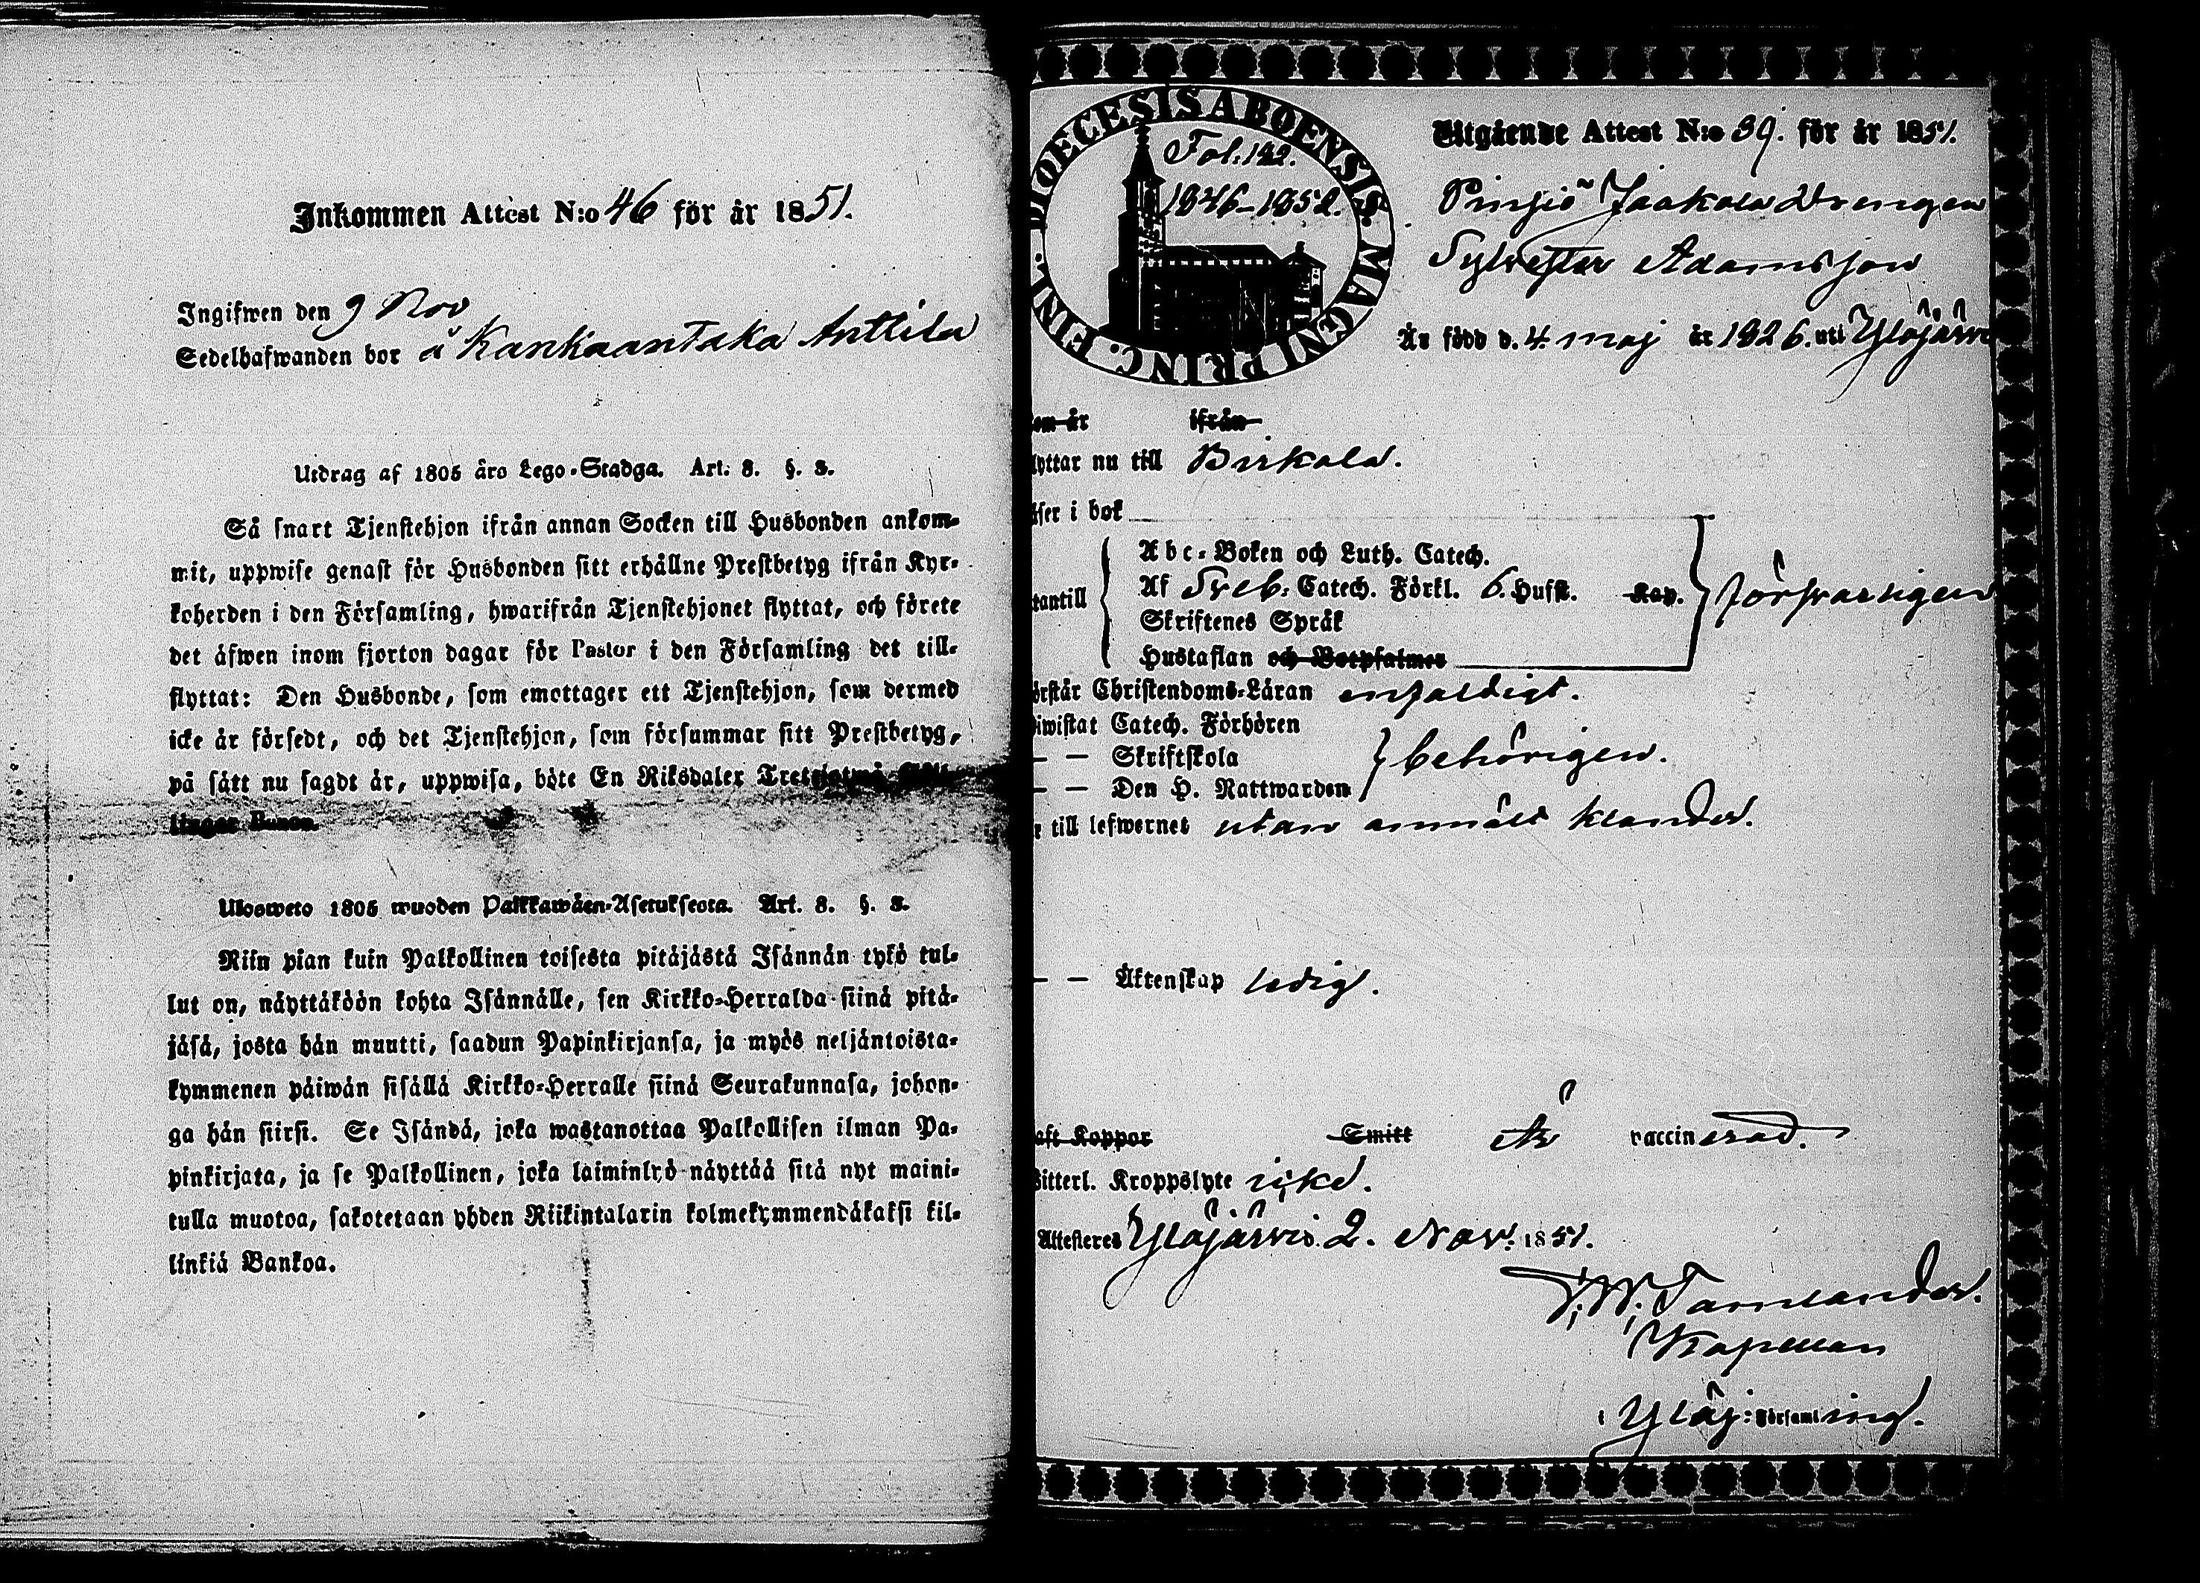 Inkommen Attest N:o 46 för år 1851.
Ingifwen den 9 Nov
Sedelhafwanden bor å Kankaantaka Anttila
Utdrag af 1805 års Lego-Stadga. Art: 8. §. 3.
Så snart Tjenstehjon ifrån annan Socken till Husbonden ankom-
mit, uppwise genast för Husbonden sitt erhållne Prestbetyg ifrån Kyr-
koherden i den Församling, hwarifrån Tjenstehjonet flyttat, och förete
det äfwen inom fjorton dagar för Pastor i den Församling det till-
flyttat: Den Husbonde, som emottager ett Tjenstehjon, som dermed
icke är försedt, och det Tjenstehjon, som försummar sitt Prestbetyg,
på sätt nu sagdt är, uppwisa, böte En Riksdaler
linger Banco.
Ulosweto 1805 wuoden Palkkawäen-Asetuksesta. Art. 8. §. 3.
Niin pian kuin Palkollinen toisesta pitäjästä Isännän tykö tul-
lut on, näyttäköön kohta Isännälle, sen Kirkko-Herralda siinä pitä-
jäsä, josta hän muutti, saadun Papinkirjansa, ja myös neljäntoista-
kymmenen päiwän sisällä Kirkko-Herralle siinä Seurakunnasa, johon-
ga hän siirsi. Se Isändä, joka wastanottaa Palkollisen ilman Pa-
pinkirjata, ja se Palkollinen, joka laiminlyö näyttää sitä nyt maini-
tulla muotoa, sakotetaan yhden Riikintalarin kolmekymmendäkaksi kil-
linkiä Bankoa.
DIOECESIS ABOENSIS. MAGNI PRINC. FINL.
Fol: 142.
1846-1852.
Utgående Attest N:o 39. för år 1851.
Pinsiö Jaakola Drengen
Sylvester Adamsson
Är född d. 4. maj år 1826. uti Ylöjärvi
om år ifrån
lyttar nu till Birkala.
äser i bok
tantill
Abc-Boken och Luth. Catech.
Af Sveb: Catech. Förkl. 6. Hufst. Kap. försvarligen
Skriftenes Språk
Hustaflan och Botpsalmer
örstår Christendoms-Läran enfaldigt.
iwistat Catech. Förhören
— — Skriftskola behörigen.
— — Den H. Nattwarden
r till lefwernet utan anmäldt klander.
— — Äktenskap ledig.
aft Koppor Smitt Är vaccinerad.
itterl. Kroppslyte icke.
Attesteres Ylöjärvi d. 2. Nov. 1851.
Kapellan
i Ylöj: Församling.